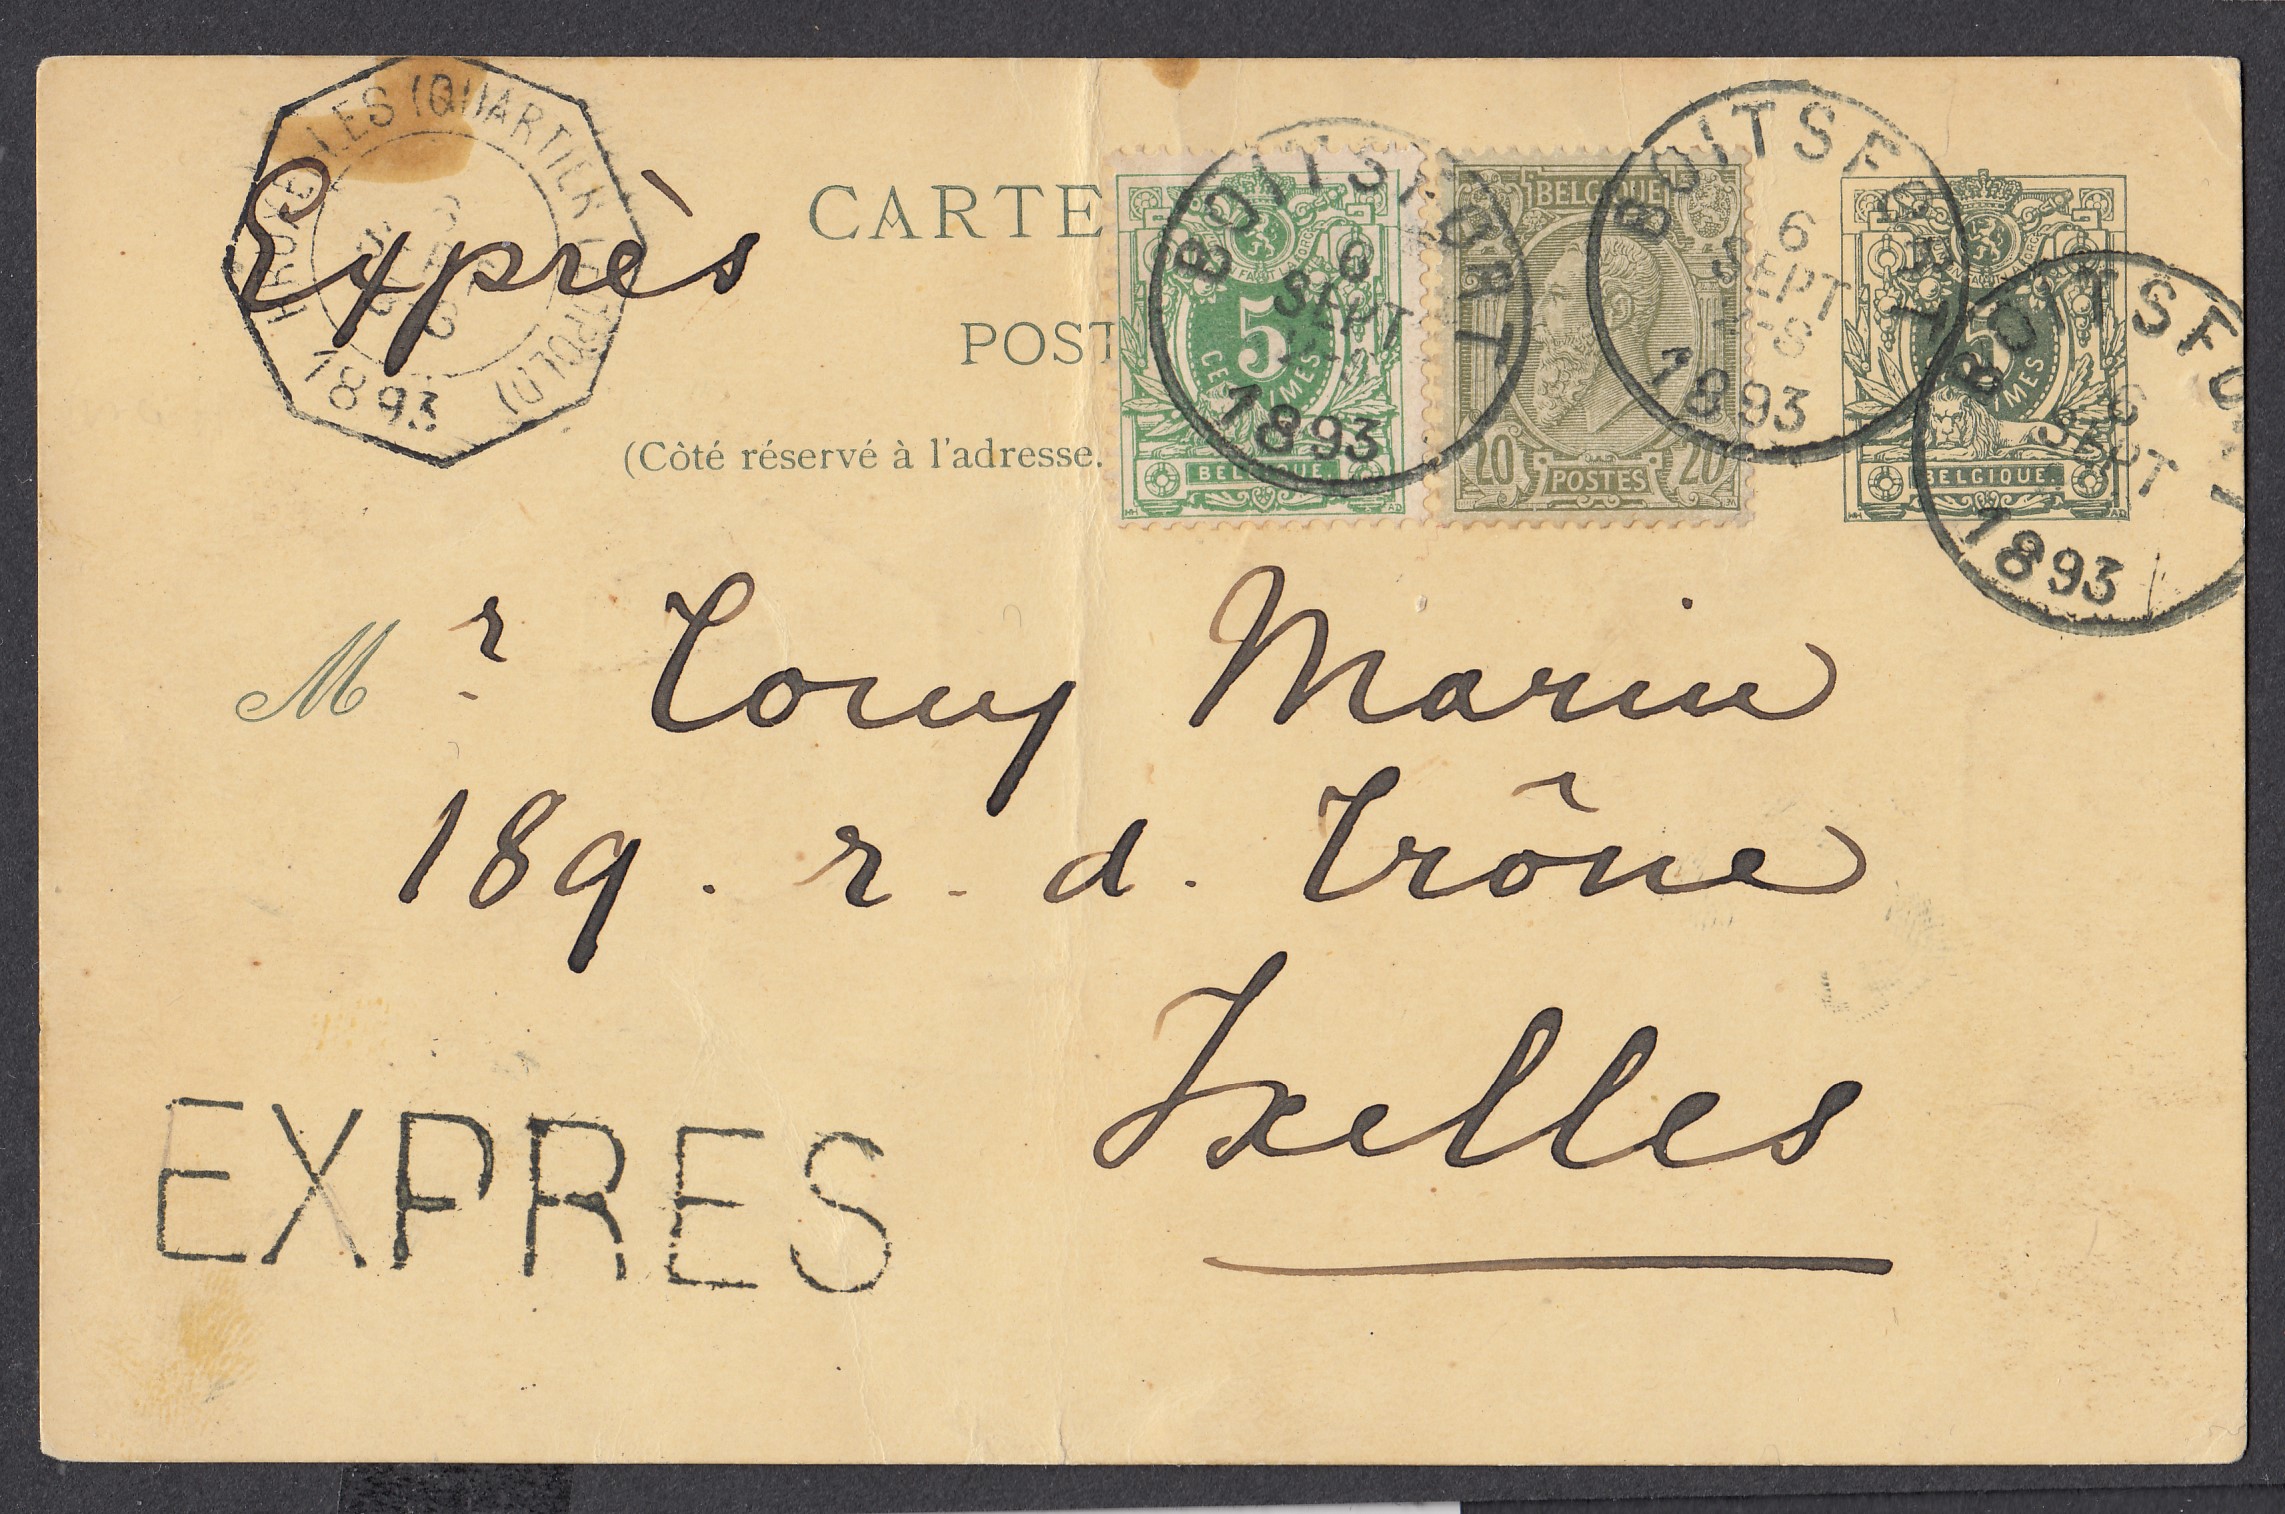 BRUXELLES (QUARTIER LEOPOLD)
1893
Exprès
CARTE
POST
(Côté réservé à l'adresse.
5
CE IMES
BELGIQUE.
BOITSFORT
6
SEPT
1893
BELGIQUE
20 POSTES 20
BOITSFORT
6
SEPT
1893
5
IMES
BELGIQUE.
BOITSFORT
6
SEPT
1893
M r Tony Marin
189. r. d. Trône
Ixelles
EXPRES